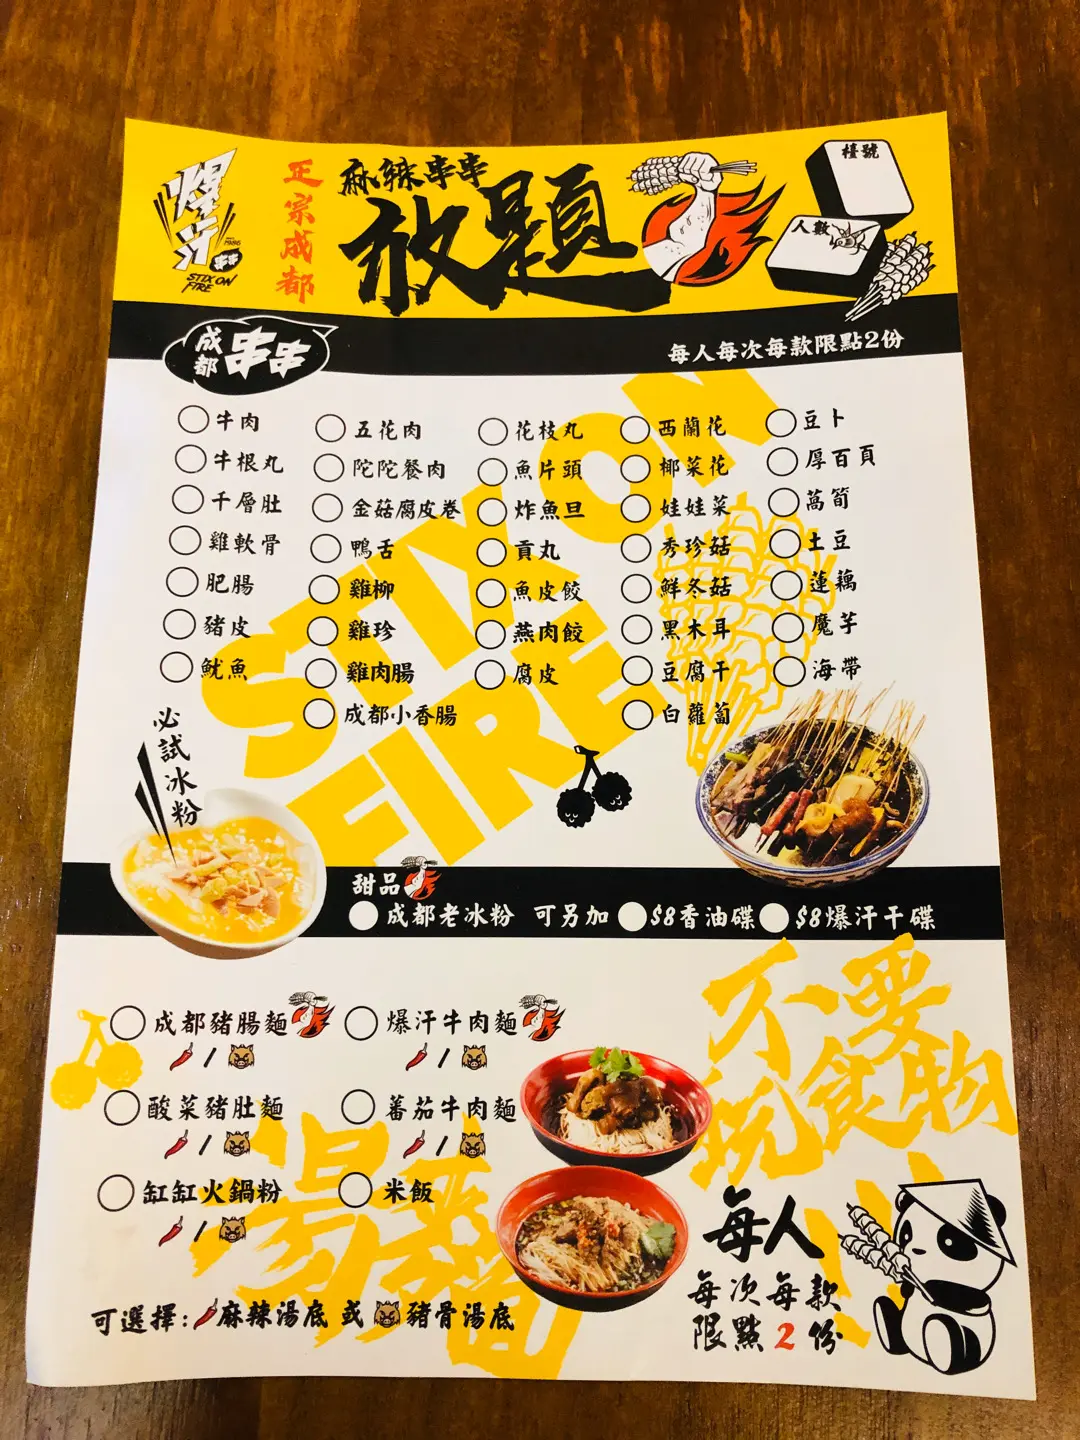 爆汗
串串
SINCE 1986
STIX ON
FIRE
正宗成都
麻辣串串
放題
檯號
人數
成都
串串
每人每次每款限點2份
牛肉
牛根丸
千層肚
雞軟骨
肥腸
豬皮
魷魚
五花肉
陀陀餐肉
金菇腐皮卷
鴨舌
雞柳
雞珍
雞肉腸
成都小香腸
花枝丸
魚片頭
炸魚旦
貢丸
魚皮餃
燕肉餃
腐皮
西蘭花
椰菜花
娃娃菜
秀珍菇
鮮冬菇
黑木耳
豆腐干
白蘿蔔
豆卜
厚百頁
萵筍
土豆
蓮藕
魔芋
海帶
STIX ON
FIRE
必試冰粉
甜品
成都老冰粉 可另加 $8香油碟 $8爆汗干碟
成都豬腸麵
/
爆汗牛肉麵
/
酸菜豬肚麵
/
蕃茄牛肉麵
/
缸缸火鍋粉
/
米飯
湯麵
可選擇:麻辣湯底 或 豬骨湯底
不要
玩食物
每人
每次每款
限點2份